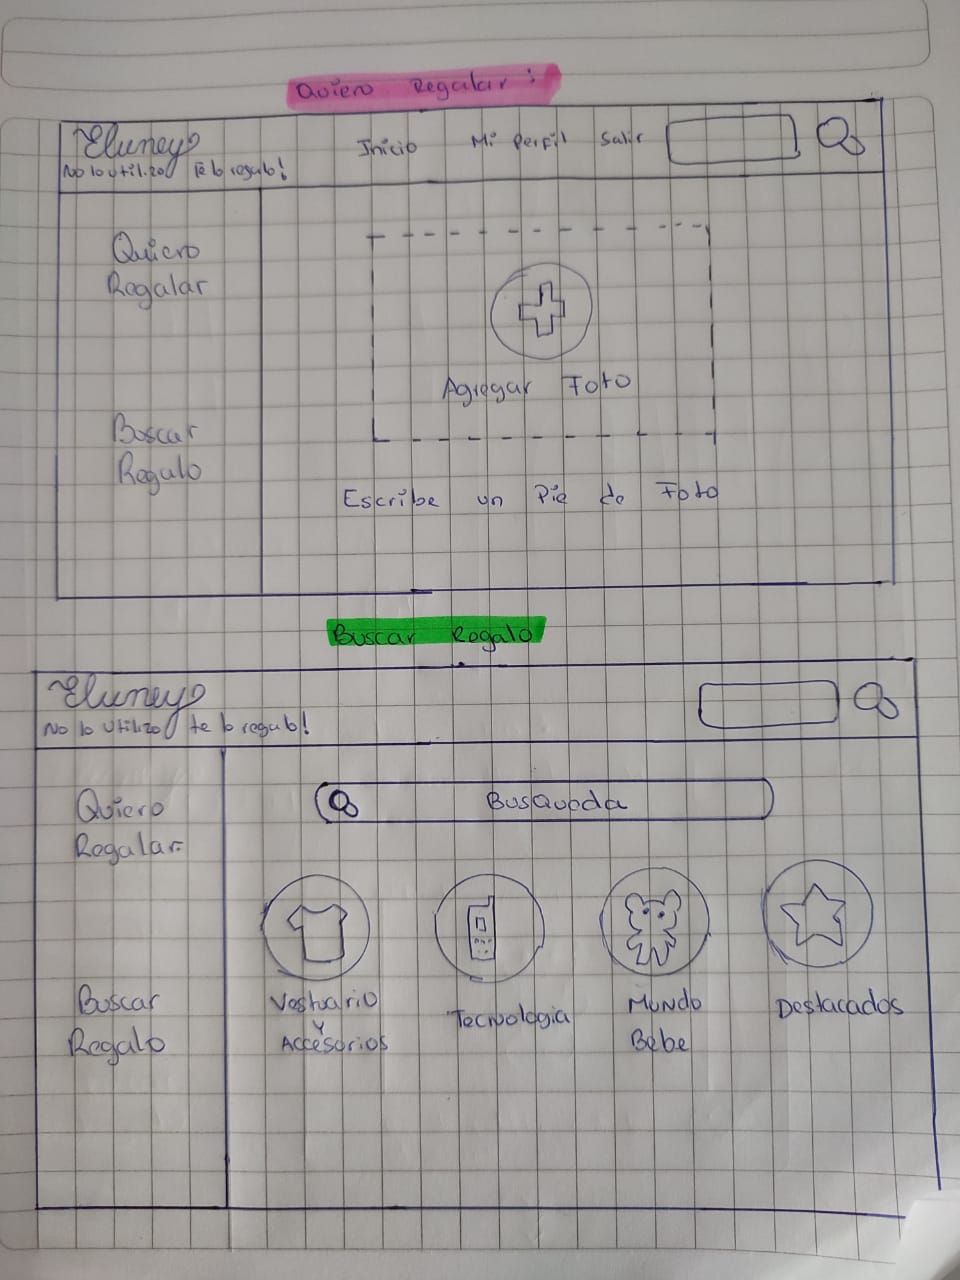 Quiero Regalar:
Eluney
No lo utilizo Te lo regalo!
Inicio Mi Perfil Salir
Quiero
Regalar
Agregar Foto
Buscar
Regalo
Escribe un Pie de Foto
Buscar Regalo
Eluney
No lo utilizo te lo regalo!
Quiero
Regalar
Busqueda
Buscar
Regalo
Vestuario
y
Accesorios
Tecnologia
Mundo
Bebe
Destacados